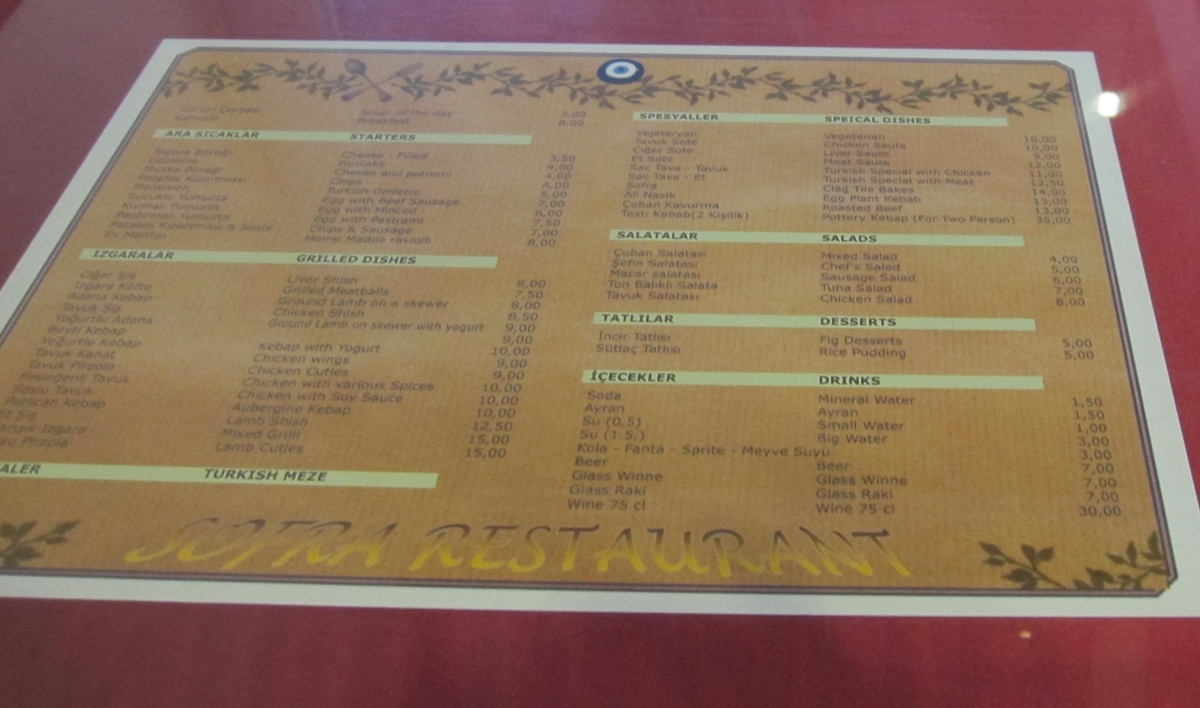 Günün Çorbası Soup of the day 3,00
Kahvaltı Breakfast 8,00
ARA SICAKLAR STARTERS
Sigara Böreği Cheese - Filled 3,50
Gözleme Pancake 4,00
Muska Böreği Cheese and patrami 4,00
Patates Kızartması Chips 4,00
Menemen Turkish Omlette 5,00
Sucuklu Yumurta Egg with Beef Sausage 7,00
Kıymalı Yumurta Egg with Minced 6,00
Pastırmalı Yumurta Egg with Pastrami 7,50
Patates Kızartması & Sosis Chips & Sausage 7,00
Ev Mantısı Home Madde raviolli 8,00
IZGARALAR GRILLED DISHES
Ciğer Şiş Liver Shish 8,00
Izgara Köfte Grilled Meatballs 7,50
Adana Kebap Ground Lamb on a skewer 8,00
Tavuk Şiş Chicken Shish 8,50
Yoğurtlu Adana Ground Lamb on skewer with yogurt 9,00
Beyti Kebap 9,00
Yoğurtlu Kebap Kebap with Yogurt 10,00
Tavuk Kanat Chicken wings 9,00
Tavuk Pirzola Chicken Cutles 9,00
Fesleğenli Tavuk Chicken with various Spices 10,00
Soslu Tavuk Chicken with Soy Sauce 10,00
Patlıcan Kebap Aubergine Kebap 10,00
Et Şiş Lamb Shish 12,50
Izgara Mixed Grill 15,00
Pirzola Lamb Cutles 15,00
TURKISH MEZE
SPESYALLER SPEICAL DISHES
Vejeteryan Vegeterian 10,00
Tavuk Sote Chicken Saute 10,00
Ciğer Sote Liver Saute 9,00
Et Sote Meat Saute 12,00
Saç Tava - Tavuk Turkish Special with Chicken 11,00
Saç Tava - Et Turkish Special with Meat 12,50
Sofra Clag Tile Bakes 14,00
Ali Nazik Egg Plant Kebab 13,00
Çoban Kavurma Roasted Beef 13,00
Testi Kebab(2 Kişilik) Pottery Kebap (For Two Person) 35,00
SALATALAR SALADS
Çoban Salatası Mixed Salad 4,00
Şefin Salatası Chef's Salad 5,00
Macar salatası Sausage Salad 6,00
Ton Balıklı Salata Tuna Salad 7,00
Tavuk Salatası Chicken Salad 8,00
TATLILAR DESSERTS
İncir Tatlısı Fig Desserts 5,00
Sütlaç Tatlısı Rice Pudding 5,00
İÇECEKLER DRINKS
Soda Mineral Water 1,50
Ayran Ayran 1,50
Su (0,5) Small Water 1,00
Su (1.5,) Big Water 3,00
Kola - Fanta - Sprite - Meyve Suyu 3,00
Beer Beer 7,00
Glass Winne Glass Winne 7,00
Glass Raki Glass Raki 7,00
Wine 75 cl Wine 75 cl 30,00
SOFRA RESTAURANT